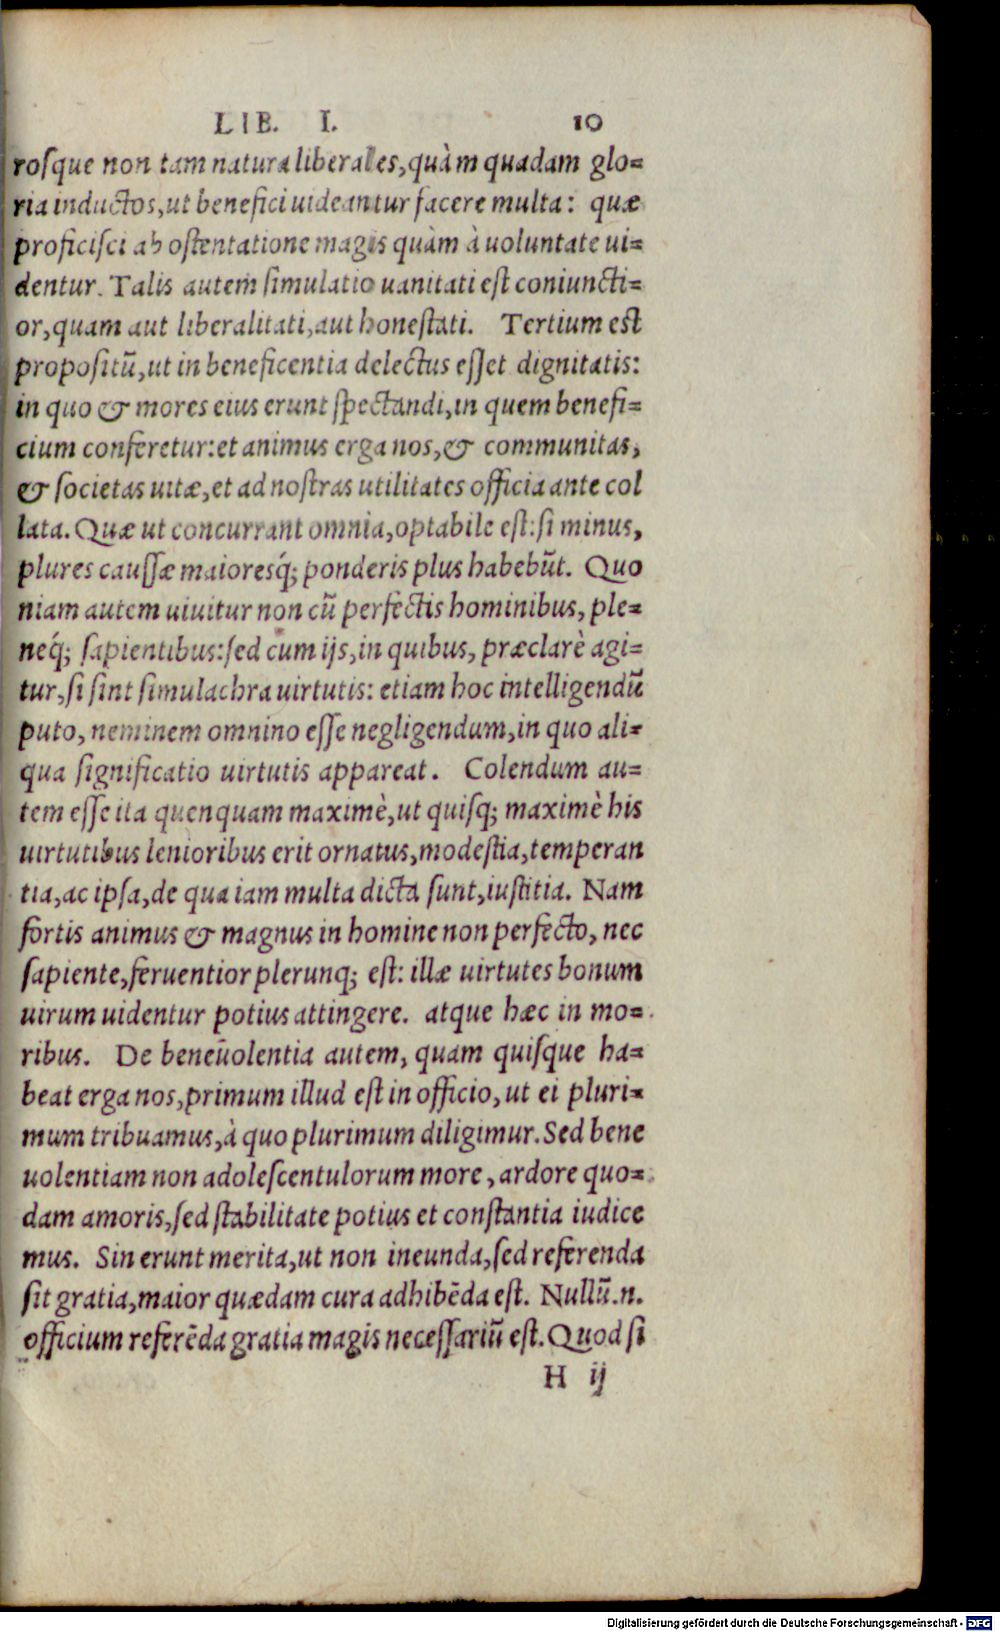 LIB. I. 10
rosque non tam natura liberales, quàm quadam glo=
ria inductos, ut benefici uideantur facere multa: quæ
proficisci ab ostentatione magis quàm à uoluntate ui=
dentur. Talis autem simulatio uanitati est coniuncti=
or, quam aut liberalitati, aut honestati. Tertium est
propositū, ut in beneficentia delectus esset dignitatis:
in quo & mores eius erunt spectandi, in quem benefi=
cium conferetur: et animus erga nos, & communitas,
& societas uitæ, et ad nostras utilitates officia ante col
lata. Quæ ut concurrant omnia, optabile est: si minus,
plures caussæ maioresq́; ponderis plus habebūt. Quo
niam autem uiuitur non cū perfectis hominibus, ple=
neq́; sapientibus: sed cum ijs, in quibus, præclarè agi=
tur, si sint simulachra uirtutis: etiam hoc intelligendū
puto, neminem omnino esse negligendum, in quo ali=
qua significatio uirtutis appareat. Colendum au=
tem esse ita quenquam maximè, ut quisq; maximè his
uirtutibus lenioribus erit ornatus, modestia, temperan
tia, ac ipsa, de qua iam multa dicta sunt, iustitia. Nam
fortis animus & magnus in homine non perfecto, nec
sapiente, feruentior plerunq; est: illæ uirtutes bonum
uirum uidentur potius attingere. atque hæc in mo=
ribus. De beneuolentia autem, quam quisque ha=
beat erga nos, primum illud est in officio, ut ei pluri=
mum tribuamus, à quo plurimum diligimur. Sed bene
uolentiam non adolescentulorum more, ardore quo=
dam amoris, sed stabilitate potius et constantia iudice
mus. Sin erunt merita, ut non ineunda, sed referenda
sit gratia, maior quædam cura adhibēda est. Nullū.n.
officium referēda gratia magis necessariū est. Quod si
H ij
Digitalisierung gefördert durch die Deutsche Forschungsgemeinschaft - DFG